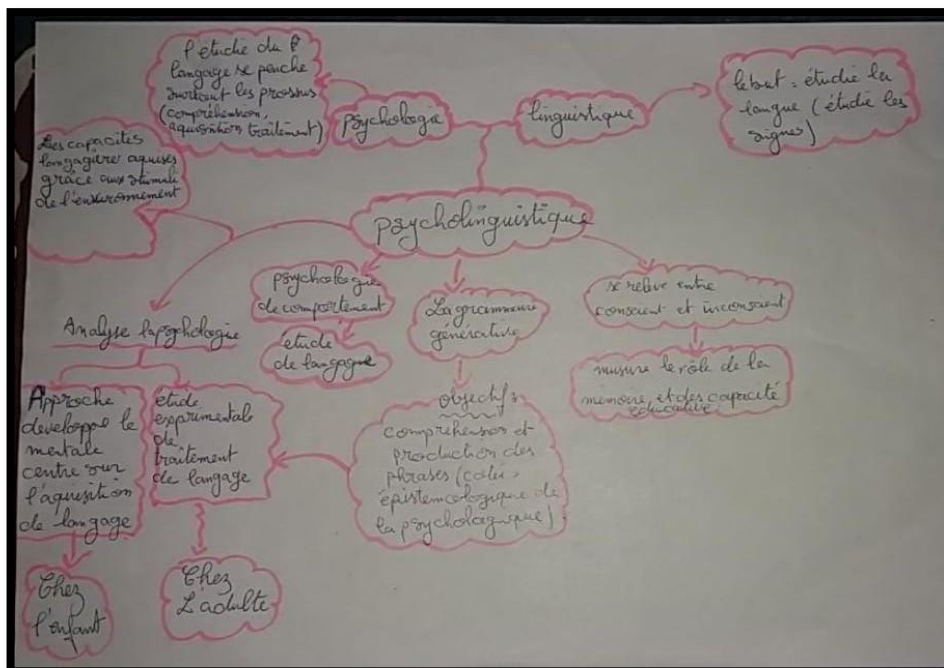 l'étude du
langage se penche
surtout les prossus
(compréhension,
aquisition traitement)
psychologie
linguistique
le but : étudié la
langue (étudié les
signes)
Les capacités
langagière aquises
grâce aux stimuli
de l'environnement
psycholinguistique
psychologie
de comportement
étude
de langague
La grammaire
générative
se relève entre
conscient et inconscient
musure le rôle de la
mémoire et des capacité
éducative
Analyse la psychologie
Approche
developpe le
mentale
centre sur
l'aquisition
de langage
étude
exprimentale
de
traitement
de langage
objectif :
compréhension et
production des
phrases (coté
épistemologique de
la
Chez
l'enfant
Chez
L'adulte